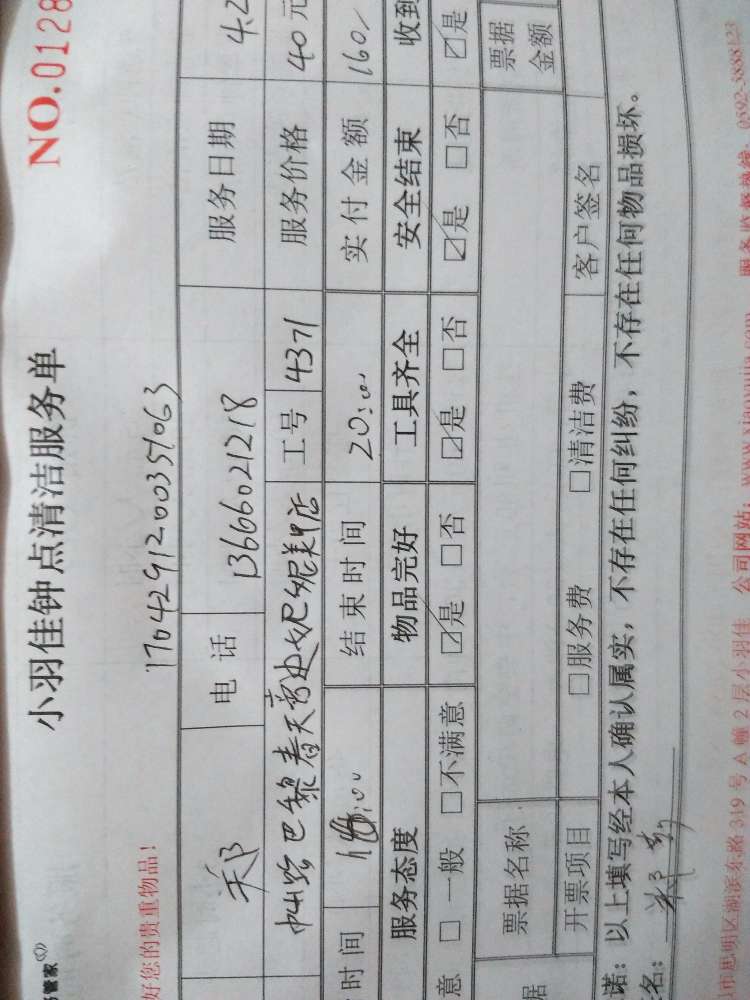 小羽佳钟点清洁服务单
NO.0128
管家
好您的贵重物品!
17042912003357063
郑 电话 13666021218 服务日期 4.2
巴黎春天 店 工号 4371 服务价格 40元
时间 :00 结束时间 20:00 实付金额 160/
服务态度 物品完好 工具齐全 安全结束 收到
意 □一般 □不满意 ☑是 □否 ☑是 □否 ☑是 □否 ☑是
票据名称 票据金额
据 开票项目 □服务费 □清洁费 客户签名
诺:以上填写经本人确认属实,不存在任何纠纷,不存在任何物品损坏。
名:
市思明区湖滨东路319号A幢2层小羽佳 公司网站: